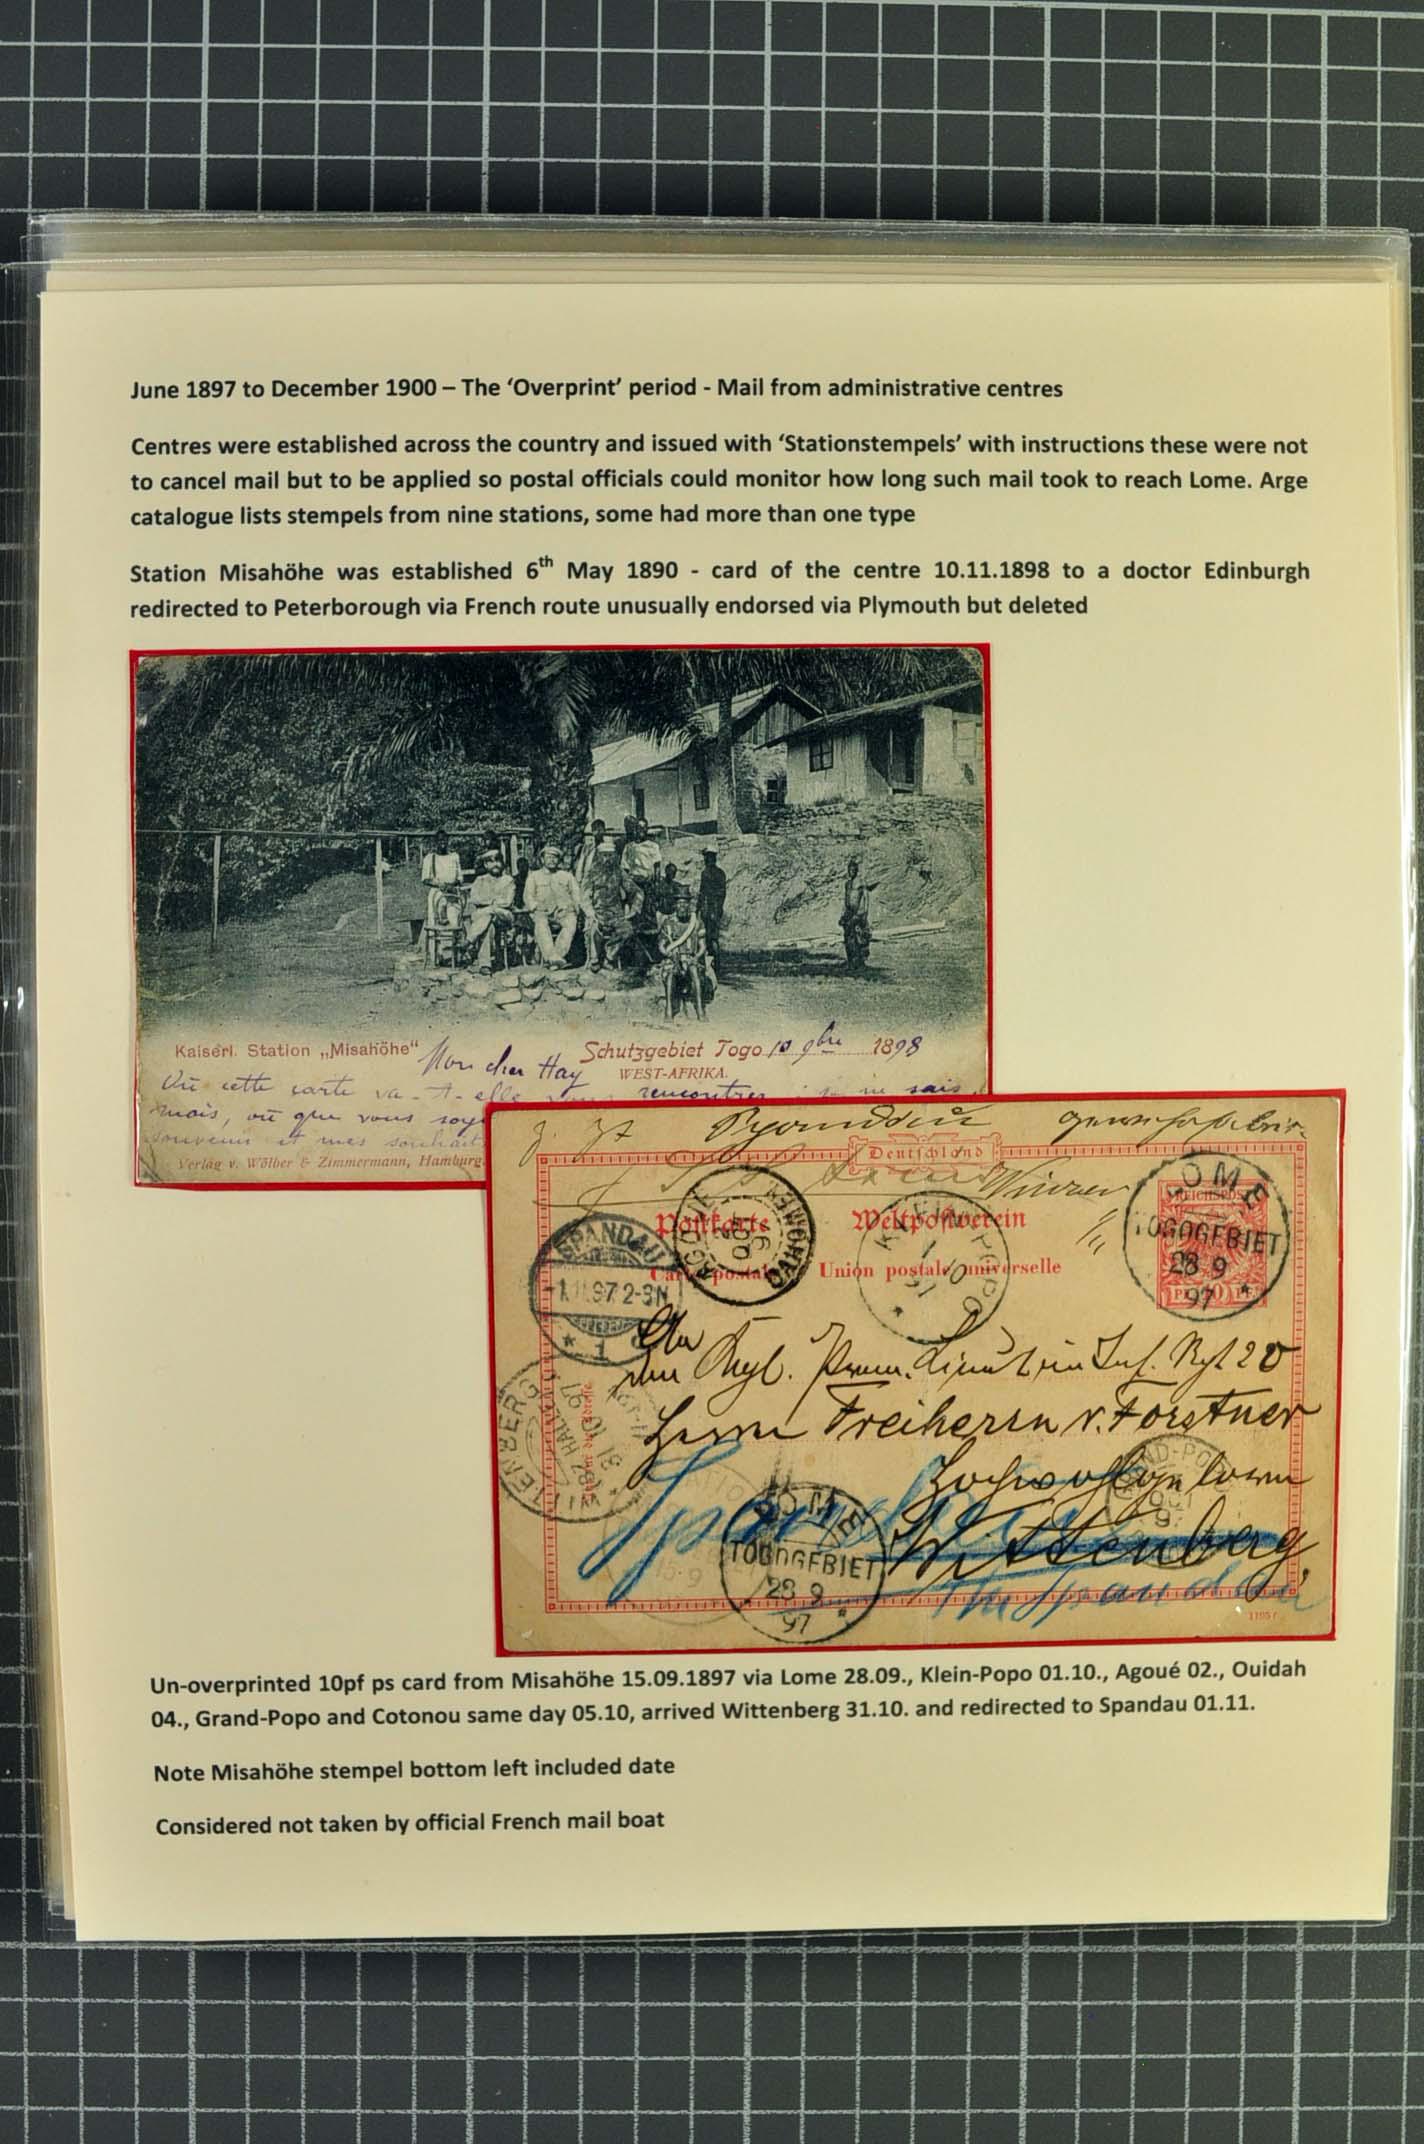 June 1897 to December 1900 – The ‘Overprint’ period - Mail from administrative centres
Centres were established across the country and issued with ‘Stationstempels’ with instructions these were not
to cancel mail but to be applied so postal officials could monitor how long such mail took to reach Lome. Arge
catalogue lists stempels from nine stations, some had more than one type
Station Misahöhe was established 6th May 1890 - card of the centre 10.11.1898 to a doctor Edinburgh
redirected to Peterborough via French route unusually endorsed via Plymouth but deleted
Kaiserl. Station „Misahöhe“ Schutzgebiet Togo 10 9bre 1898
WEST-AFRIKA.
Mon cher Hay
Où cette carte va-t-elle vous rencontrer, je ne sais,
mais, où que vous soye
souvenir et mes souhait
Verlag v. Wölber & Zimmermann, Hamburg.
Deutschland
Postkarte Weltpostverein
Carte postale Union postale universelle
REICHSPOST
LOME
TOGOGEBIET
28 9
97
KLEIN-POPO
1 10
97
AGOUE
DAHOMEY
SPANDAU
1.11.97 2-3N
1
WITTENBERG
BZ HALLE
31 10 97
Herrn Freiherrn v. Forstner
Hochwohlgeboren
Wittenberg,
Spandau
GRAND-POPO
LOME
TOGOGEBIET
28 9
97
15.9
Spandau
Un-overprinted 10pf ps card from Misahöhe 15.09.1897 via Lome 28.09., Klein-Popo 01.10., Agoué 02., Ouidah
04., Grand-Popo and Cotonou same day 05.10, arrived Wittenberg 31.10. and redirected to Spandau 01.11.
Note Misahöhe stempel bottom left included date
Considered not taken by official French mail boat